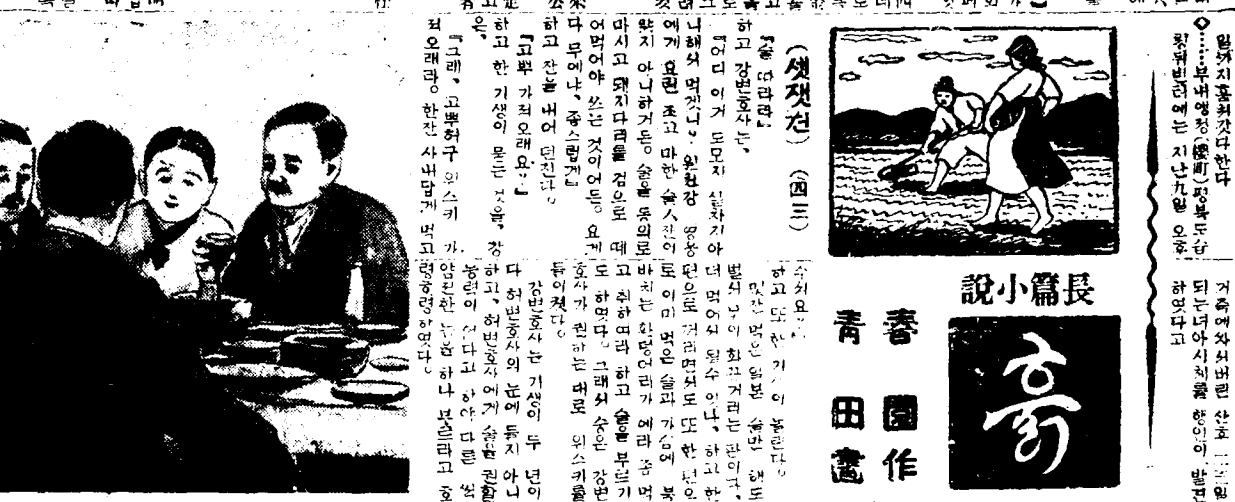 일까지 훔처갓다 한다
◇……부내앵정(櫻町)평북도립
뒤빈터에는 지난九일 오후
거죽에차서버린 산호 二三일
되는녀아시체를 행인이 발견
하엿다고
長篇小說
흙
春園作
靑田畵
(셋잿건) (四三)
『술 따라라』
하고 강변호사는,
『어디 이거 도모지 실차지아
니해서 먹겟니. 영웅
에게 요런 조고마한 술ㅅ잔이
맛지 아니하거든. 술을 동의로
마시고 돼지다리를 검으로 떼
어먹어야 쓰는 것이어든. 요게
다 무에냐, 좀스럽게』
하고 잔을 내어 던진다.
『고뿌 가저오래요』
하고 한 기생이 묻는 것을, 강
은,
『그래, 고뿌허구 위스키 가
저오래라. 한잔 사내답게 먹고
하고 또 한 기생이 놀란다.
먹은 일본 술만 해도
벌서 낯이 화끈거리는 판이다.
더 먹어서 될수 잇나, 하고 한
편으로 꺼리면서도 또 한 편으
로 이미 먹은 술과 가슴에 북
바치는 화덩어리가 에라 좀 먹
고 취하여라 하고 술을 부르기
도 하엿다. 그래서 숭은 강변
호사가 권하는 대로 위스키를
들이켯다.
강변호사는 기생이 두 년이
다 허변호사의 눈에 들지 아니
하고, 허변호사에게 술을 권할
능력이 업다고 하야 다른 썩
얌전한 놈을 하나 보르라고 호
령호령하엿다.